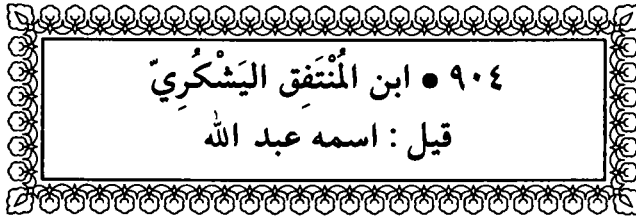 ٩٠٤ ● ابن المُنْتَفِق اليَشْكُرِيّ
قيل : اسمه عبد الله